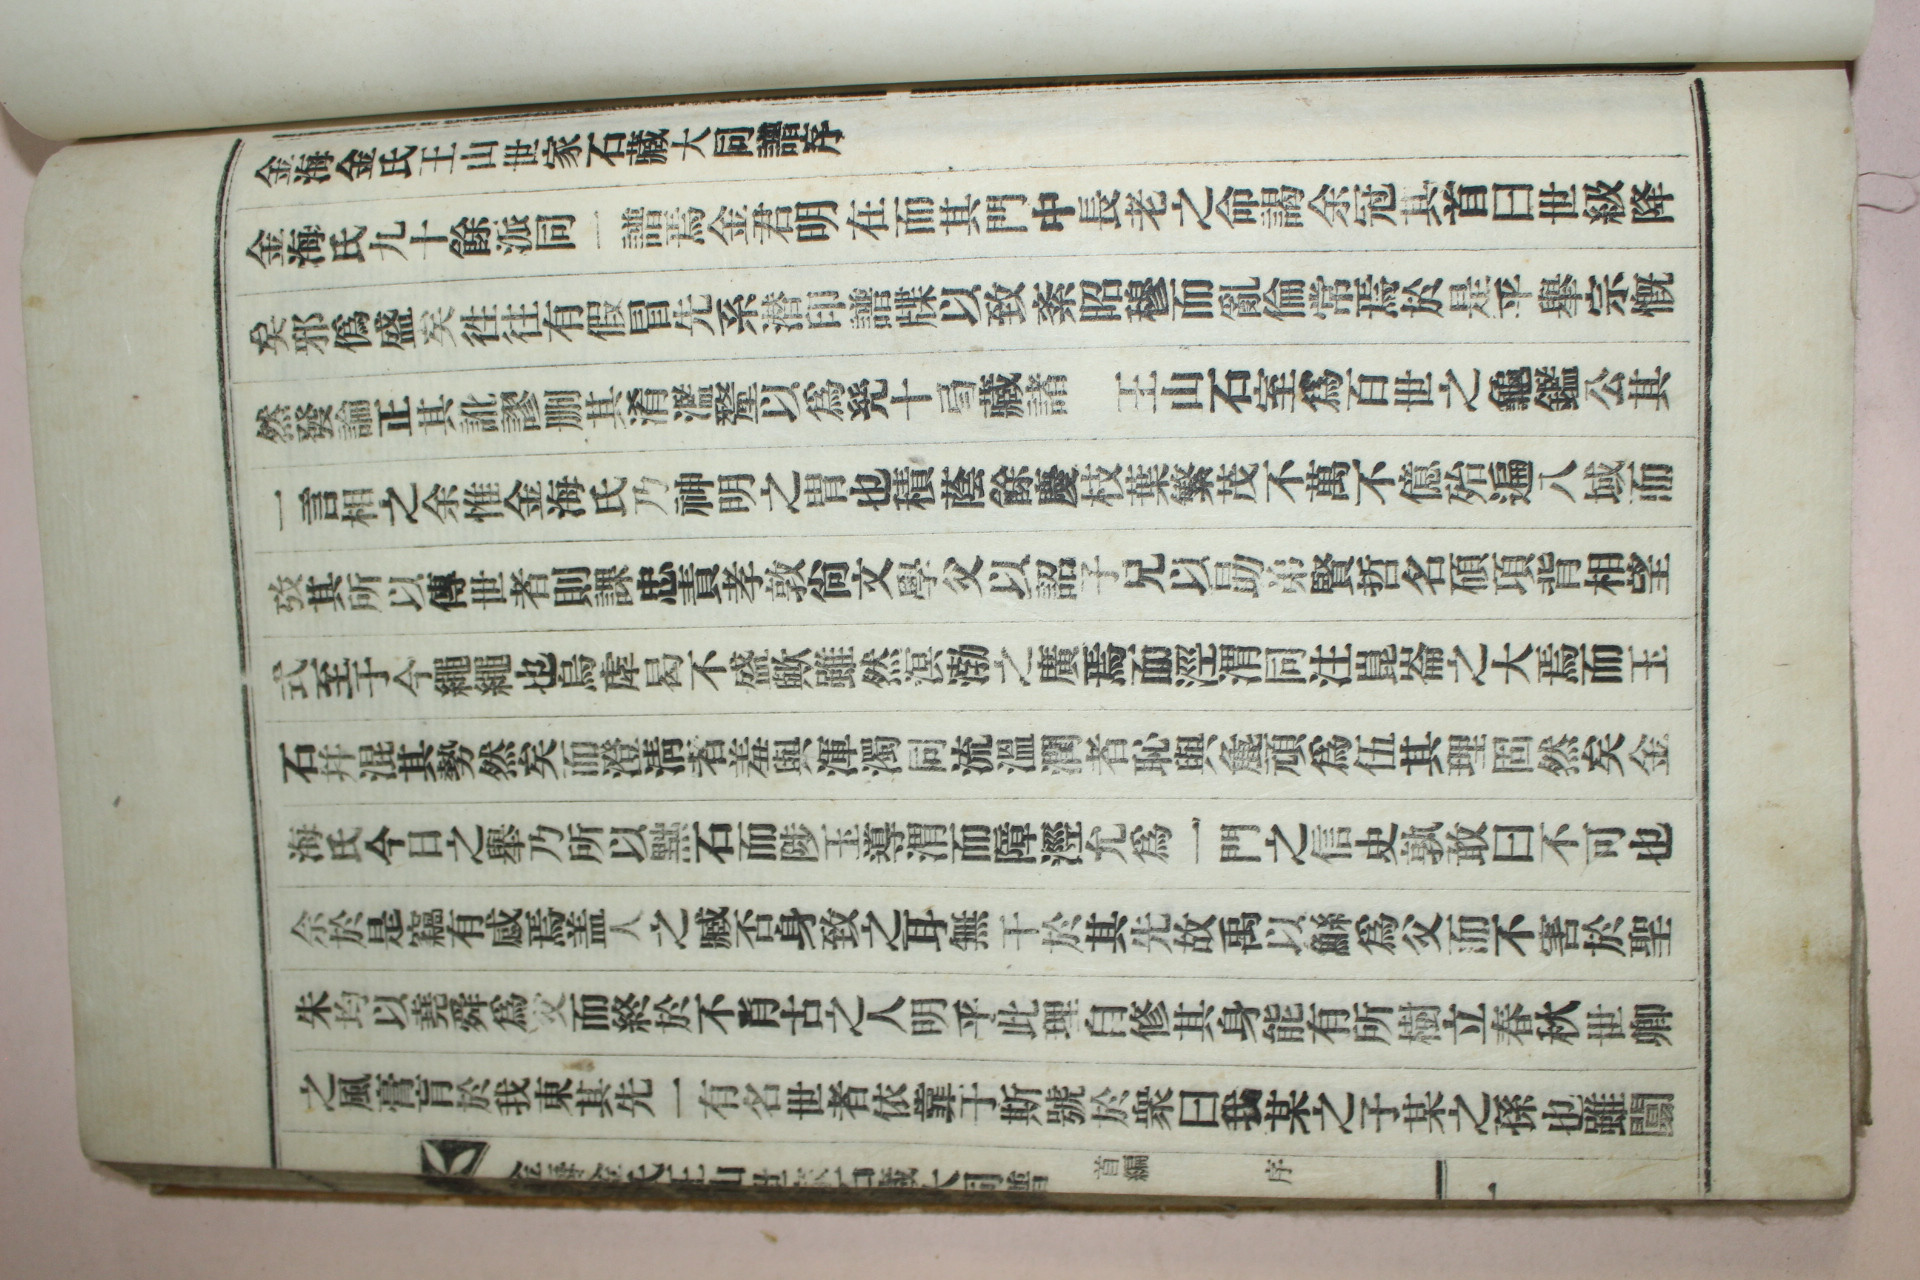 金海金氏王山世家石藏大同譜序
金海氏九十餘派同一譜焉金君明在而其門中長老之命謁余冠其首曰世級降
矣邪僞盛矣往往有假冒先系潛印譜牒以致紊昭穆而亂倫常焉於是乎擧宗慨
然發論正其訛謬刪其淆濫釐以爲凡十号藏諸 王山石室爲百世之龜鑑公其
一言相之余惟金海氏乃神明之胄也積蔭餘慶枝葉繁茂不萬不億殆遍八域而
攷其所以傳世者則課忠責孝敦尙文學父以詔子兄以勖弟賢哲名碩項背相望
式至于今繩繩也烏虖曷不盛歟雖然溟渤之廣焉而涇渭同注崑崙之大焉而玉
石幷混其勢然矣而澄淸者羞與渾濁同流溫潤者恥與麁頑爲伍其理固然矣金
海氏今日之擧乃所以黜石而陟玉導渭而障涇允爲一門之信史孰敢曰不可也
余於是竊有感焉盖人之臧否身致之耳無干於其先故禹以鯀爲父而不害於聖
朱均以堯舜爲父而終於不肖古之人明乎此理自修其身能有所樹立春秋世卿
之風膏肓於我東其先一有名世者依靠于斯號於衆曰我某之子某之孫也雖闒
金海金氏王山世家石藏大同譜 首編 序 一